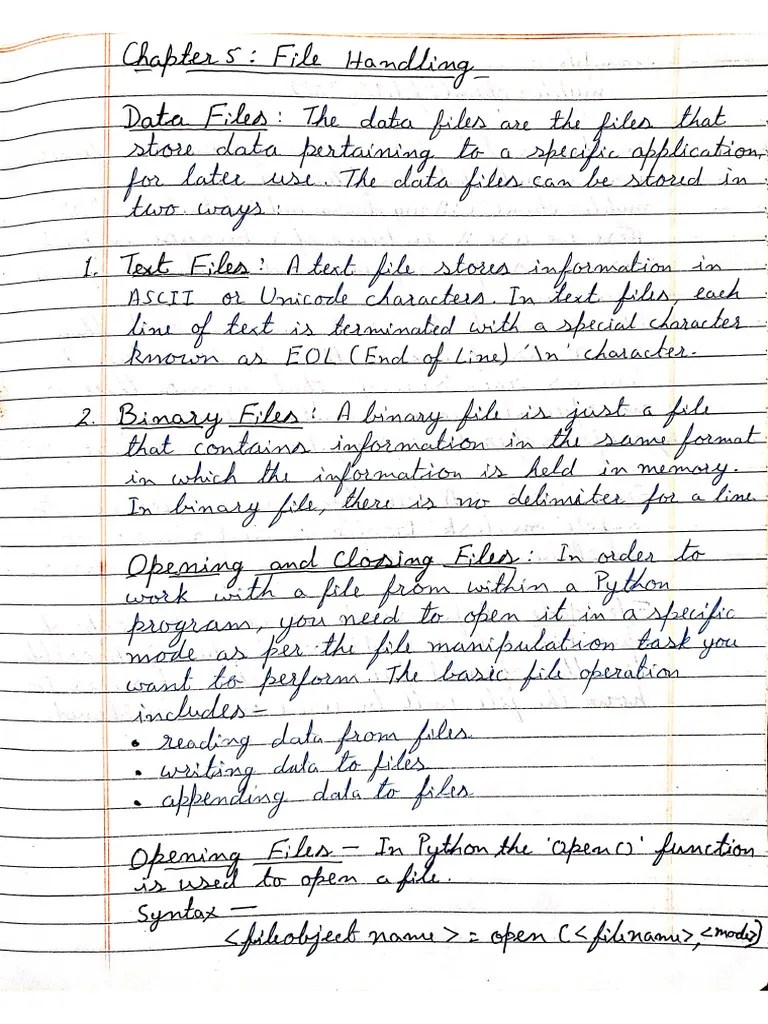 Chapter 5 : File Handling
Data Files : The data files are the files that
store data pertaining to a specific application,
for later use. The data files can be stored in
two ways :
1. Text Files : A text file stores information in
ASCII or Unicode characters. In text files, each
line of text is terminated with a special character
known as EOL (End of Line) '\n' character.
2. Binary Files : A binary file is just a file
that contains information in the same format
in which the information is held in memory.
In binary file, there is no delimiter for a line
Opening and Closing Files : In order to
work with a file from within a Python
program, you need to open it in a specific
mode as per the file manipulation task you
want to perform. The basic file operation
includes -
• reading data from files
• writing data to files
• appending data to files
Opening Files - In Python the 'open()' function
is used to open a file.
Syntax -
<fileobject name> = open (<filename>, <mode>)